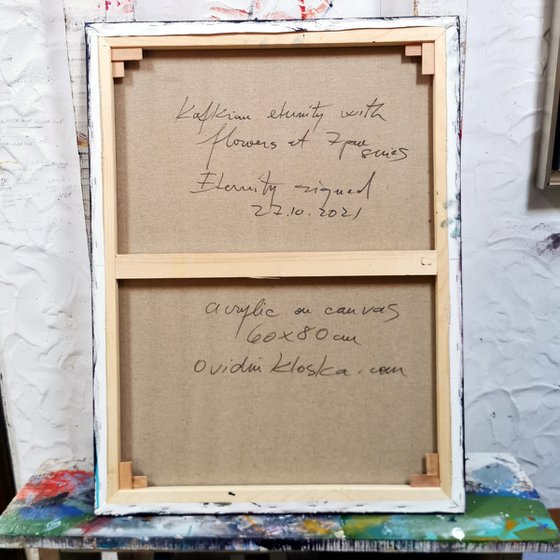 Kafkian eternity with
flowers at 7pm
series
Eternity signed
27.10.2021
acrylic on canvas
60x80cm
ovidiu kloska.com